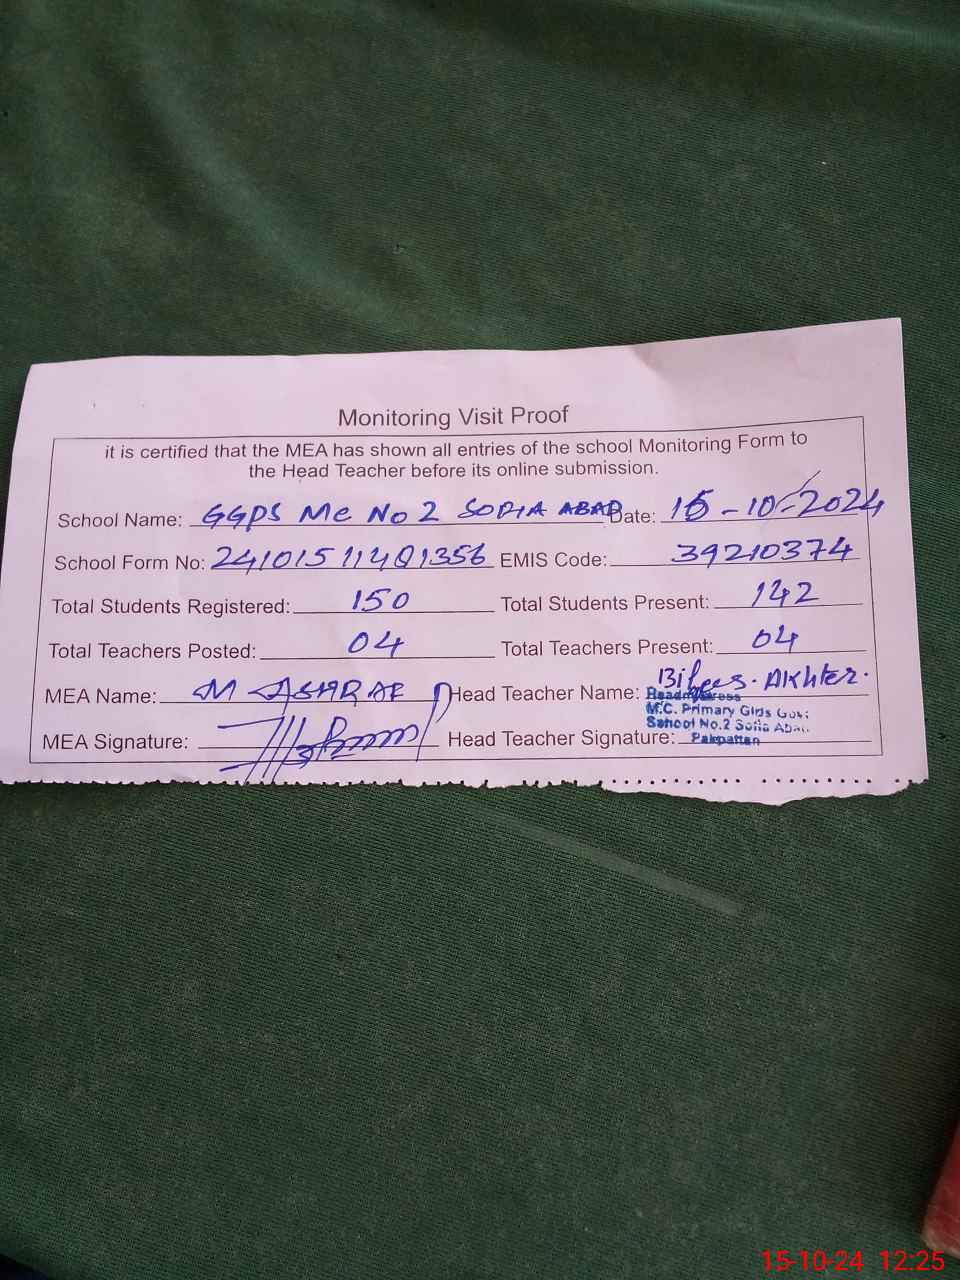 Monitoring Visit Proof
it is certified that the MEA has shown all entries of the school Monitoring Form to
the Head Teacher before its online submission.
School Name: GGPS MC No 2 SOFIA ABAD Date: 15-10-2024
School Form No: 241015114Q1356 EMIS Code: 39210374
Total Students Registered: 150 Total Students Present: 142
Total Teachers Posted: 04 Total Teachers Present: 04
MEA Name: M ASHRAF Head Teacher Name: Bilqees. Akhter.
Headmistress
M.C. Primary Girls Govt:
MEA Signature: Head Teacher Signature:
School No.2 Sofia Abad.
Pakpattan
15-10-24 12:25